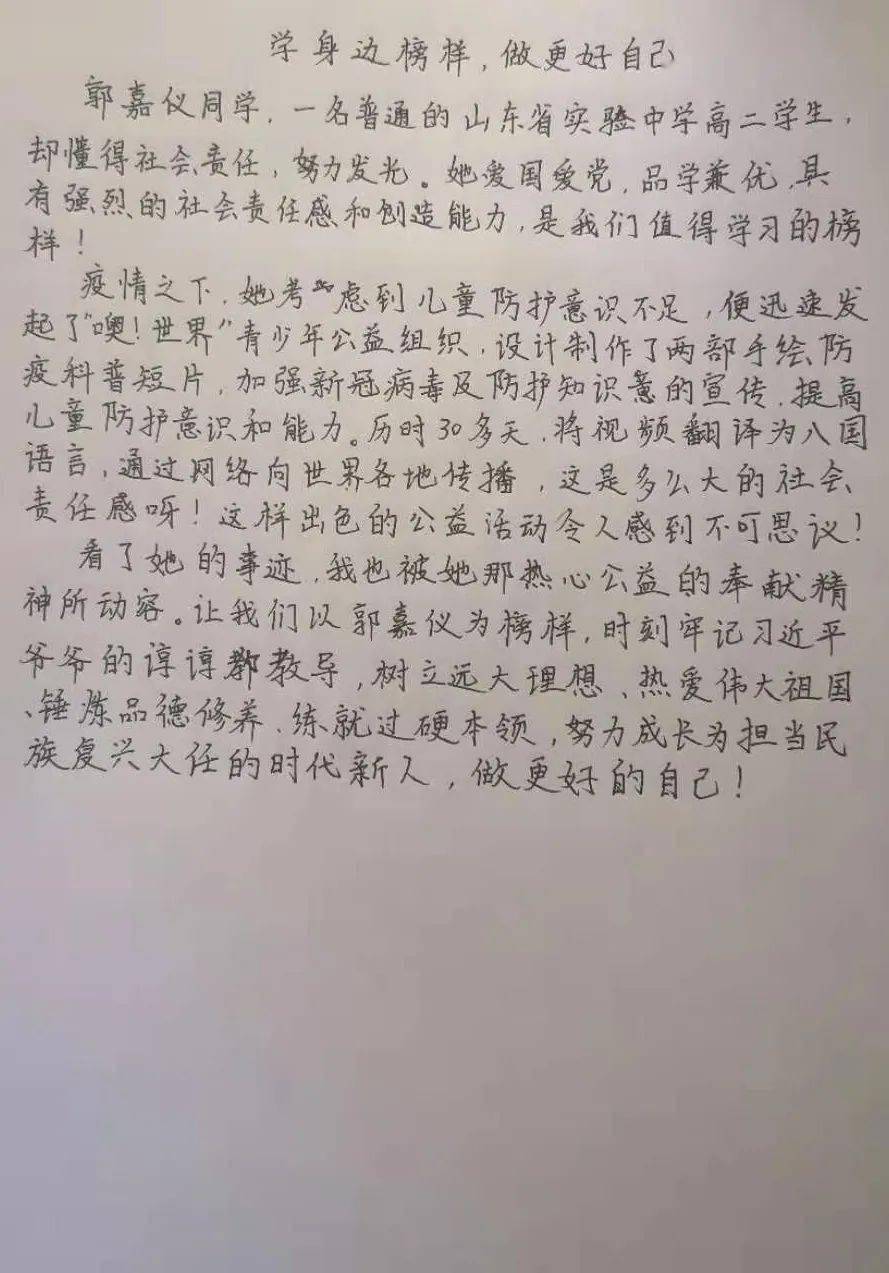 学身边榜样，做更好自己
郭嘉仪同学，一名普通的山东省实验中学高二学生，
却懂得社会责任，努力发光。她爱国爱党，品学兼优，具
有强烈的社会责任感和创造能力，是我们值得学习的榜
样！
疫情之下，她考虑到儿童防护意识不足，便迅速发
起了“噢！世界”青少年公益组织，设计制作了两部手绘防
疫科普短片，加强新冠病毒及防护知识的宣传，提高
儿童防护意识和能力。历时30多天，将视频翻译为八国
语言，通过网络向世界各地传播，这是多么大的社会
责任感呀！这样出色的公益活动令人感到不可思议！
看了她的事迹，我也被她那热心公益的奉献精
神所动容。让我们以郭嘉仪为榜样，时刻牢记习近平
爷爷的谆谆教导，树立远大理想、热爱伟大祖国
、锤炼品德修养、练就过硬本领，努力成长为担当民
族复兴大任的时代新人，做更好的自己！